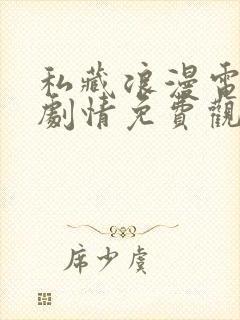 私藏浪漫電
劇情免費觀
席少虞